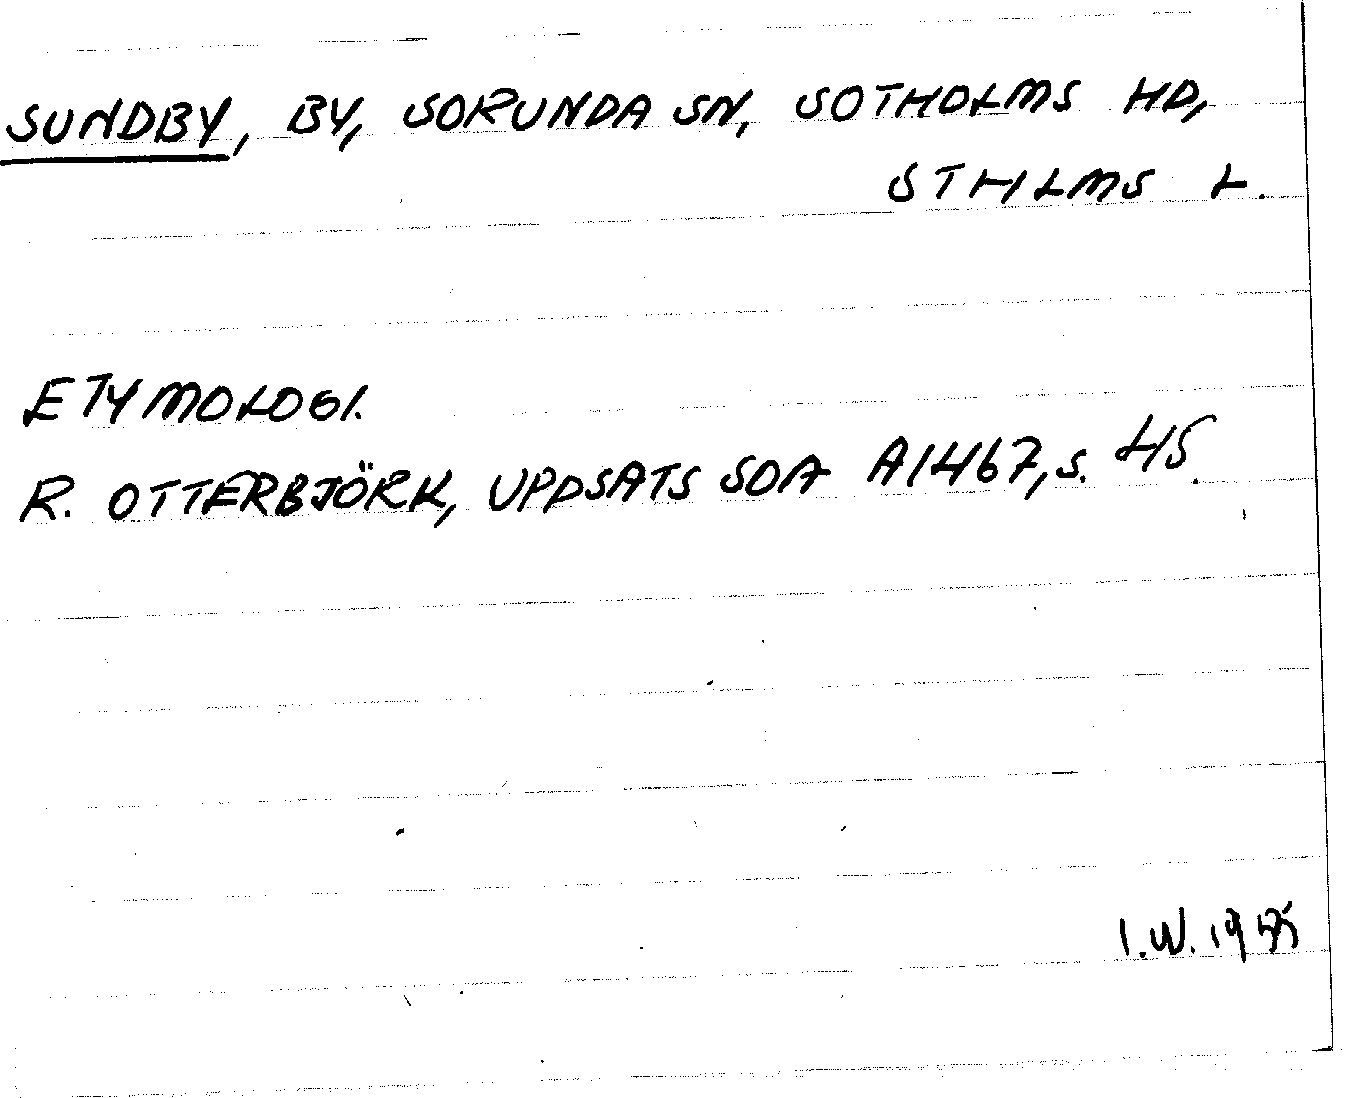 SUNDBY, BY, SORUNDA SN, SOTHOLMS HD,
STHLMS L.
ETYMOLOGI.
R. OTTERBJÖRK, UPPSATS SOA A1467, S. 45.
I.W. 1955